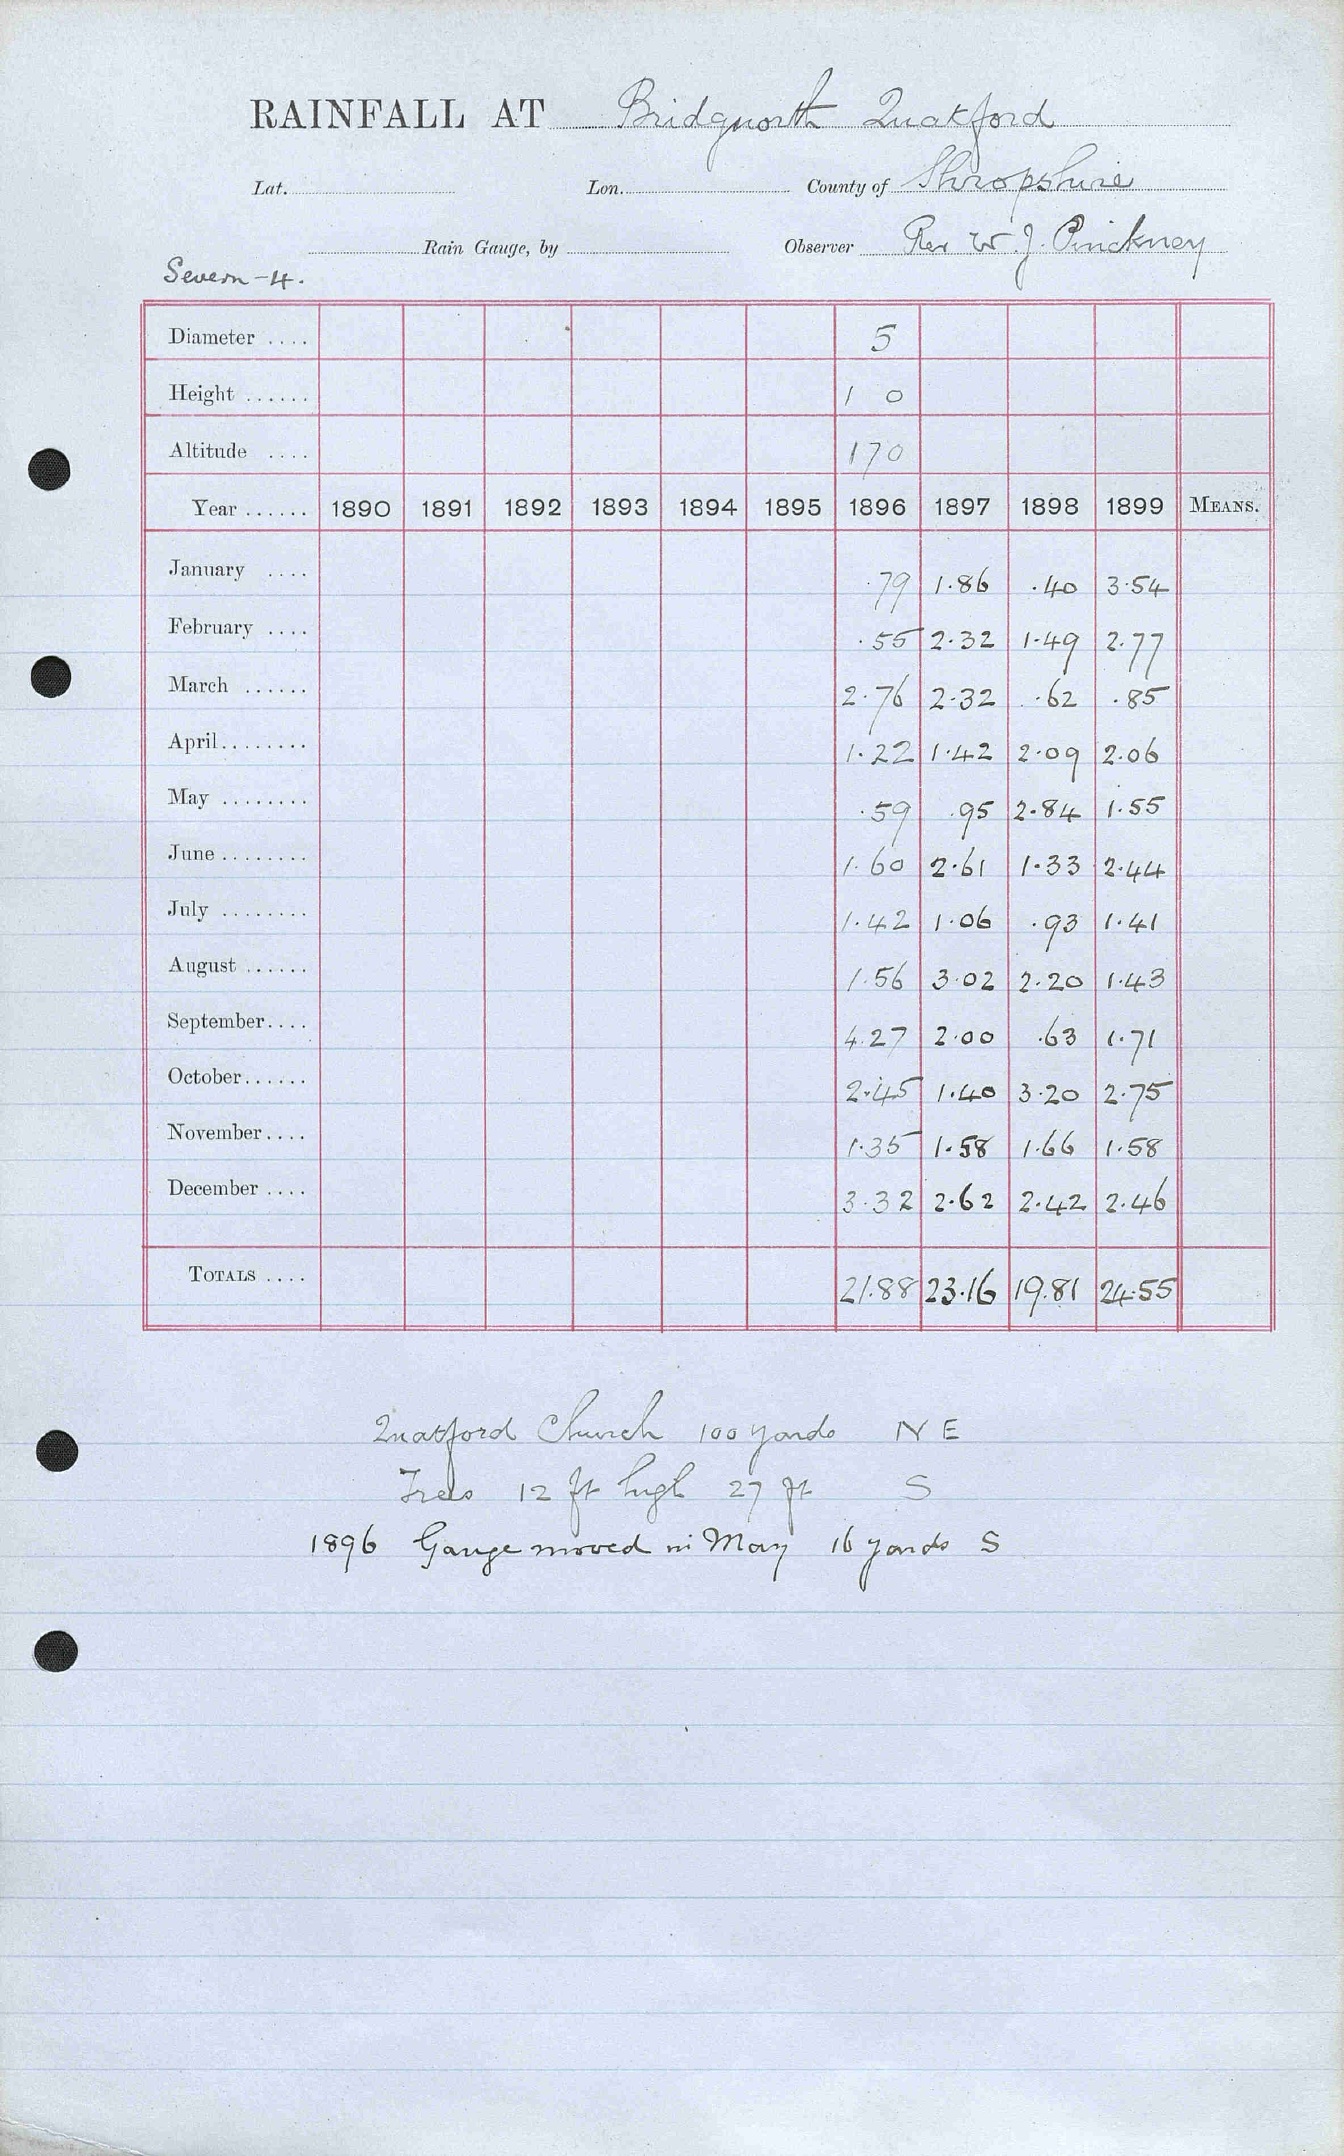 RAINFALL AT Bridgnorth Quatford
Lat. Lon. County of Shropshire
Rain Gauge, by Observer Rev W. J. Pinckney
Severn - 4.
Diameter .... 5
Height ...... 1 0
Altitude .... 170
Year ...... 1890 1891 1892 1893 1894 1895 1896 1897 1898 1899 MEANS.
January .... .79 1.86 .40 3.54
February .... .55 2.32 1.49 2.77
March ...... 2.76 2.32 .62 .85
April........ 1.22 1.42 2.09 2.06
May ........ .59 .95 2.84 1.55
June ........ 1.60 2.61 1.33 2.44
July ........ 1.42 1.06 .93 1.41
August ...... 1.56 3.02 2.20 1.43
September.... 4.27 2.00 .63 1.71
October...... 2.45 1.40 3.20 2.75
November.... 1.35 1.58 1.66 1.58
December .... 3.32 2.62 2.42 2.46
TOTALS .... 21.88 23.16 19.81 24.55
Quatford Church 100 yards N E
Trees 12 ft high 27 ft S
1896 Gauge moved in May 16 yards S